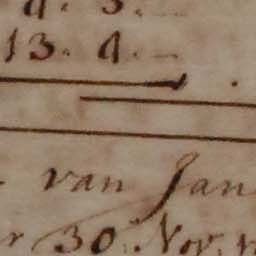 9. 3.
13. 9.
van Jan
30 Nov.